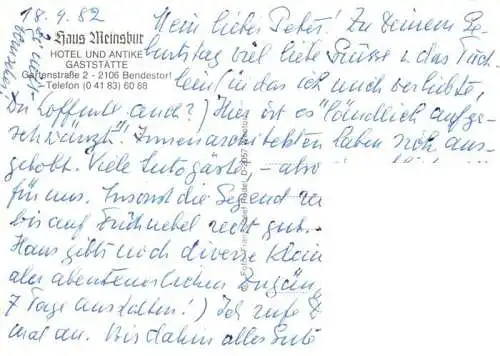 18.9.82
Haus Meinsbur
HOTEL UND ANTIKE
GASTSTÄTTE
Gartenstraße 2 - 2106 Bendestorf
Telefon (0 41 83) 60 88
Mein lieber Peter! Zu Deinem Ge-
burtstag viel liebe Grüsse u. das Tüch-
lein (in das ich mich verliebte,
Du hoffentl. auch?) Hier ist es "ländlich aufge-
schwänzt". Innenarchitekten haben sich aus-
getobt. Viele Autogäste - also
für uns. Ansonst die Gegend
bis auf Frühnebel recht gut.
Haus gibts noch diverse klein
alle abenteuerlichen
7 Tage aushalten!) Ich rufe
mal an. Bis dahin alles Gute